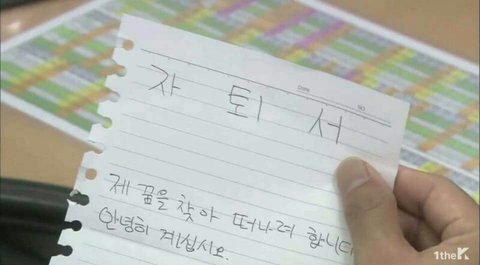 Date
NO
자 퇴 서
제 꿈을 찾아 떠나려 합니다
안녕히 계십시오.
1theK